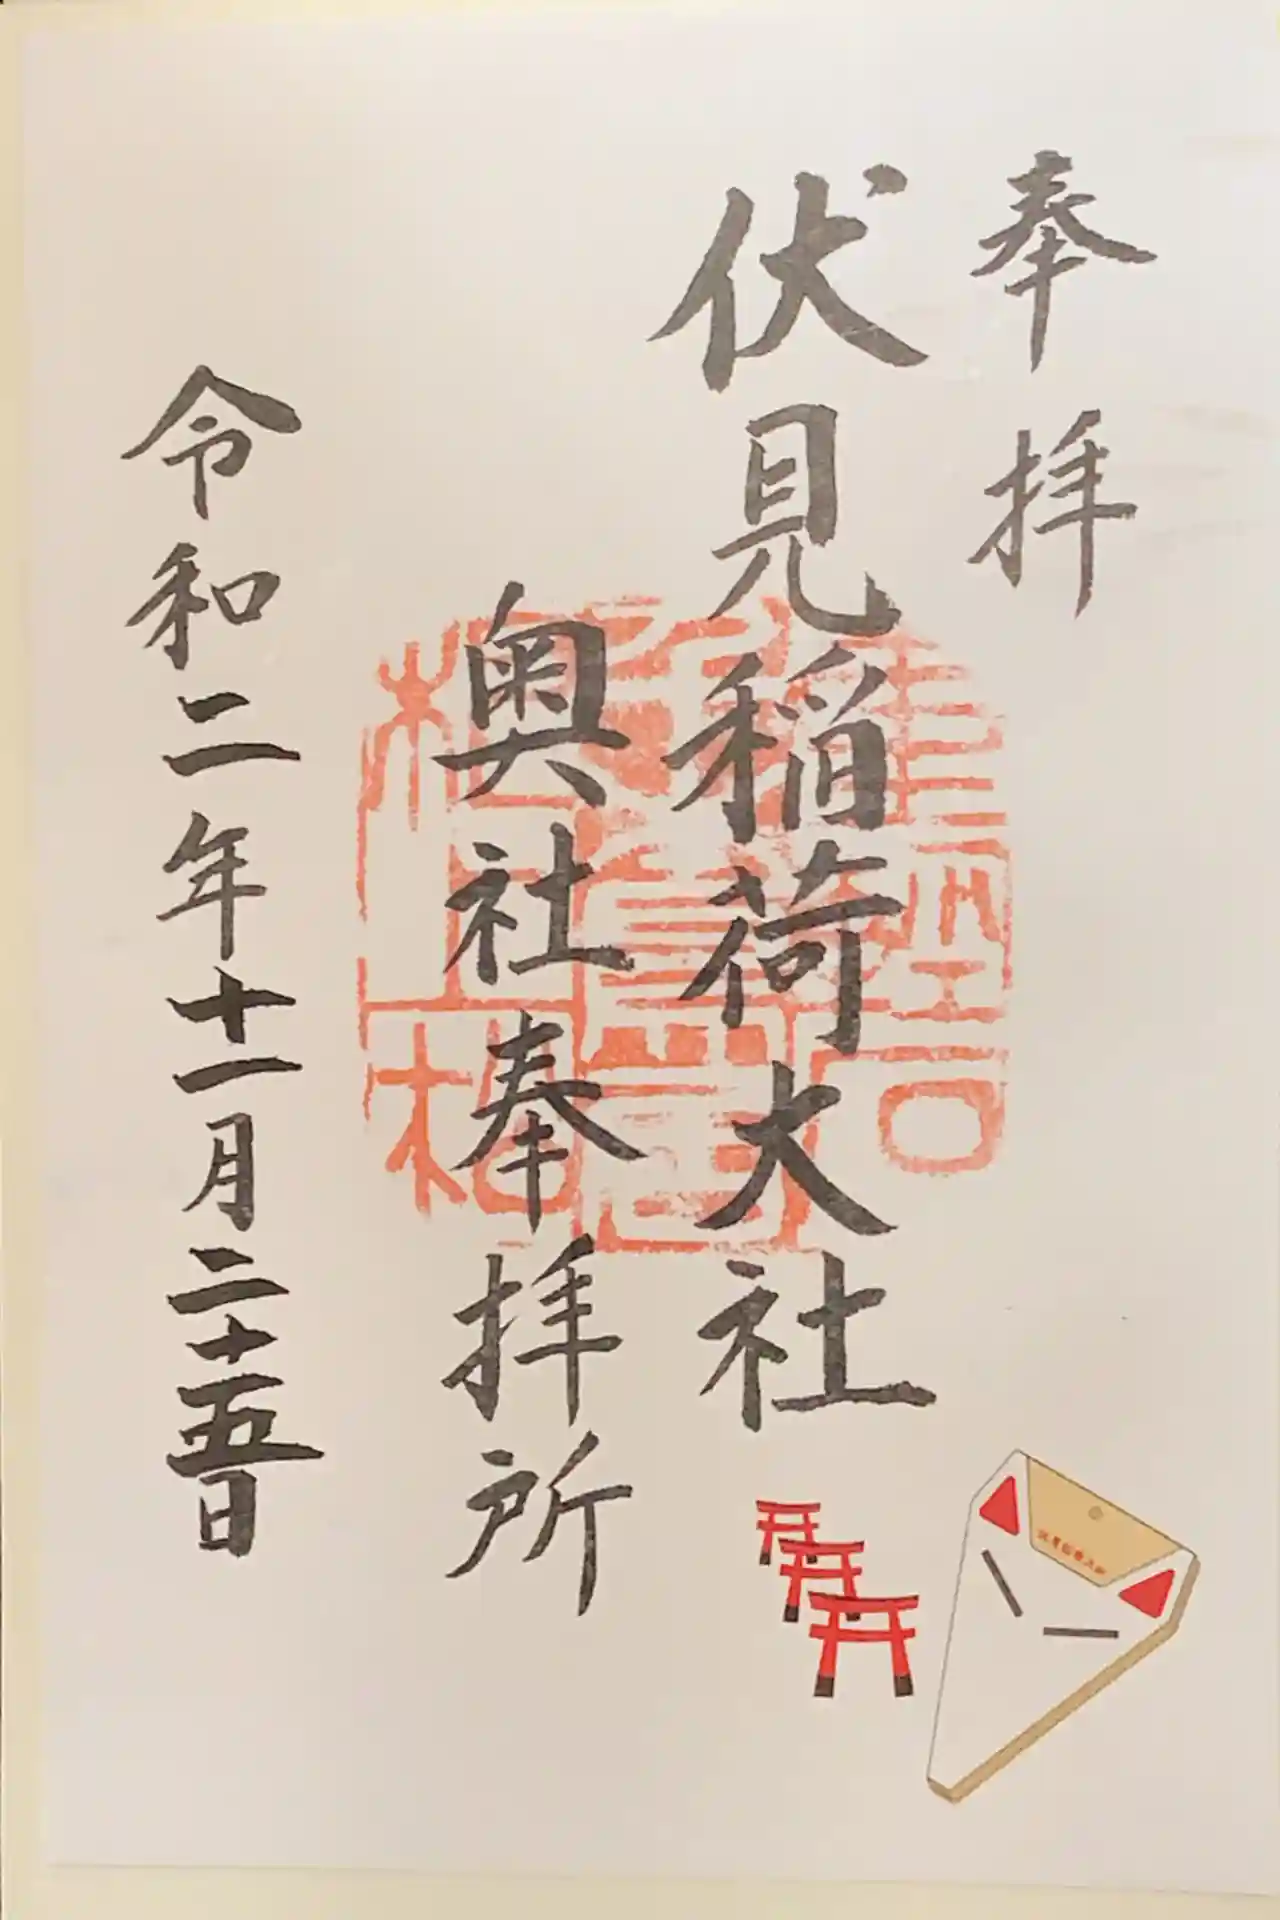 奉拝
伏見稲荷大社
奥社奉拝所
令和二年十一月二十五日